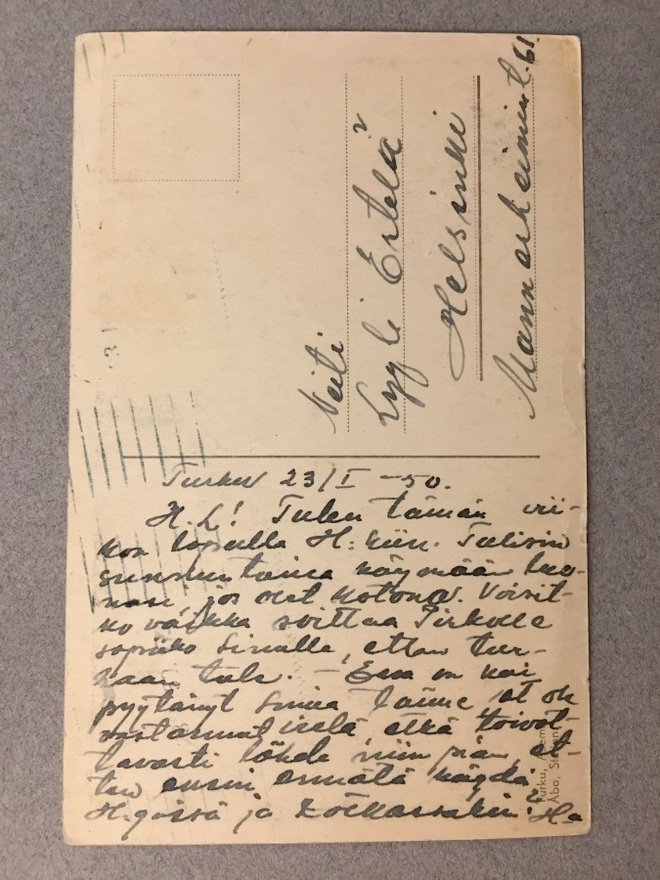 Neiti
Lyyli Erkelä
Helsinki
Mannerheimint. 61.
Turku 23/I -50.
H. L! Tulen tämän vii-
kon lopulla H:kiin. Tulisin
sunnuntaina käymään luo-
nasi, jos olet kotona. Voisit-
ko vaikka soittaa Pirkolle
sopiiko Sinulle, etten tur-
haan tule. – Eva on kai
pyytänyt Sinua Tänne, et ole
vastannut vielä, eikä toivot-
tavasti lähde niin pian, et-
ten ensin ennätä käydä
H:gissä ja
Turku,
Åbo,